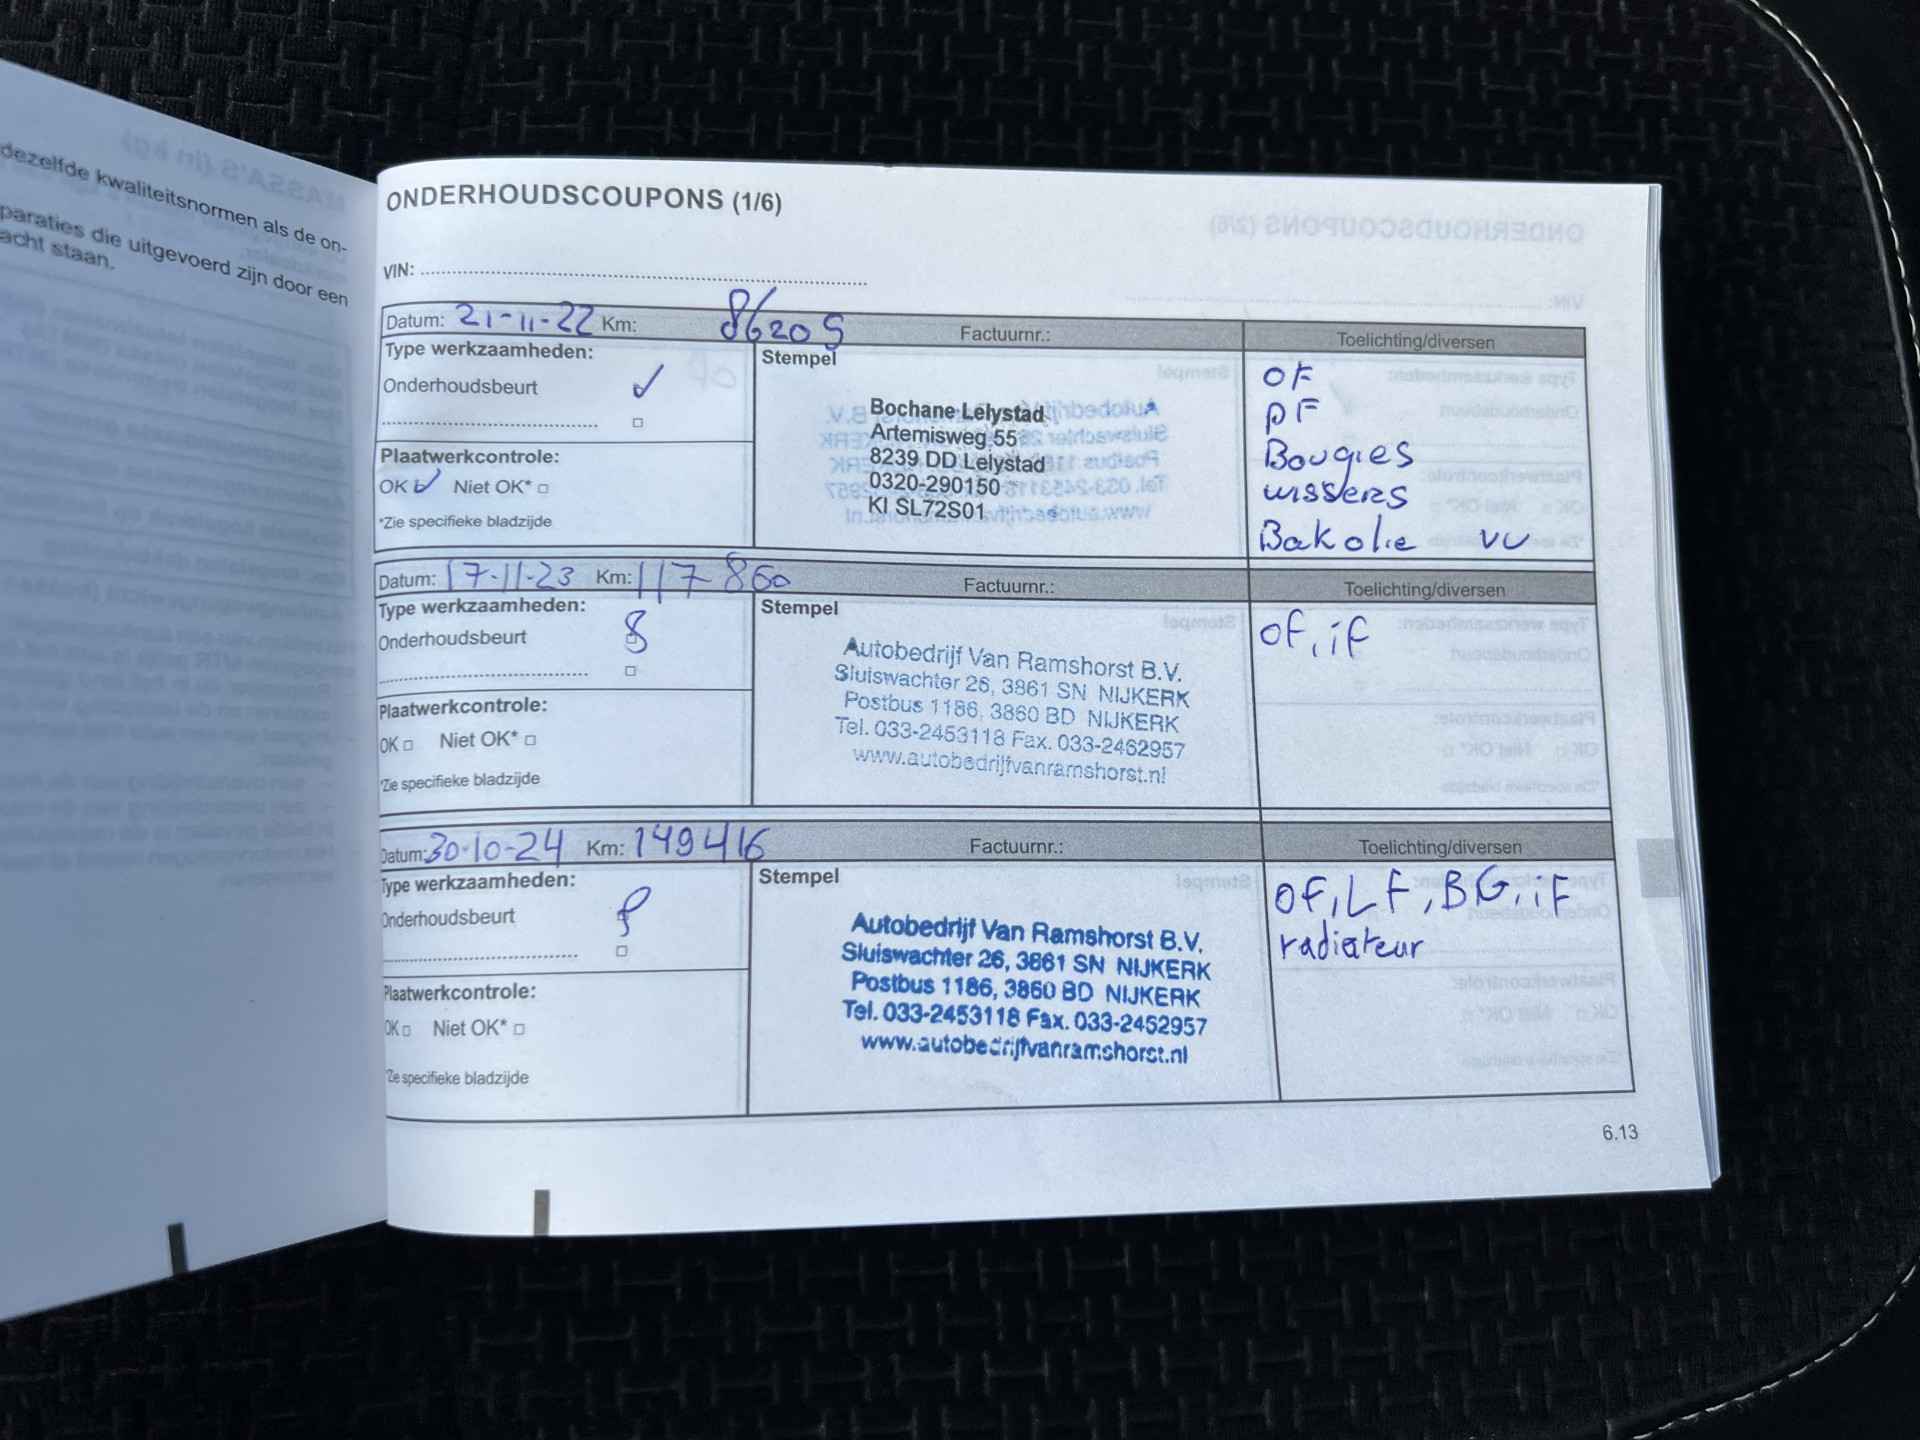 dezelfde kwaliteitsnormen als de on-
paraties die uitgevoerd zijn door een
acht staan.
ONDERHOUDSCOUPONS (1/6)
VIN:
Datum: 21-11-22 Km: 86205 Factuurnr.: Toelichting/diversen
Type werkzaamheden:
Onderhoudsbeurt
Plaatwerkcontrole:
OK Niet OK*
*Zie specifieke bladzijde
Stempel
Bochane Lelystad
Artemisweg 55
8239 DD Lelystad
0320-290150
KI SL72S01
OF
PF
Bougies
wissers
Bak olie VV
Datum: 17-11-23 Km: 117860 Factuurnr.: Toelichting/diversen
Type werkzaamheden:
Onderhoudsbeurt
Plaatwerkcontrole:
OK Niet OK*
*Zie specifieke bladzijde
Stempel
Autobedrijf Van Ramshorst B.V.
Sluiswachter 26, 3861 SN NIJKERK
Postbus 1186, 3860 BD NIJKERK
Tel. 033-2453118 Fax. 033-2462957
www.autobedrijfvanramshorst.nl
OF, iF
Datum: 30-10-24 Km: 149416 Factuurnr.: Toelichting/diversen
Type werkzaamheden:
Onderhoudsbeurt
Plaatwerkcontrole:
OK Niet OK*
*Zie specifieke bladzijde
Stempel
Autobedrijf Van Ramshorst B.V.
Sluiswachter 26, 3861 SN NIJKERK
Postbus 1186, 3860 BD NIJKERK
Tel. 033-2453118 Fax. 033-2452957
www.autobedrijfvanramshorst.nl
OF, LF, BG, iF
radiateur
6.13